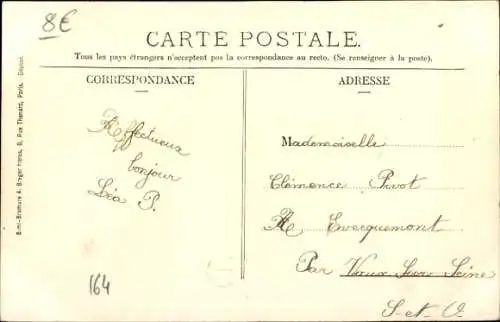 8€
CARTE POSTALE.
Tous les pays étrangers n'acceptent pas la correspondance au recto. (Se renseigner à la poste).
CORRESPONDANCE
Affectueux
bonjour
Léa P.
164
ADRESSE
Mademoiselle
Clémence Pivot
Evecquemont
Par Vaux Sur Seine
S-et-O
A. Breger frères, 9, Rue Thénard, Paris.